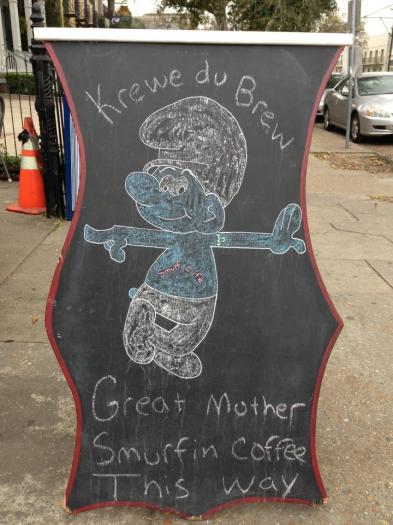 Krewe du Brew
Smurf Life
Great Mother
Smurfin Coffee
This way